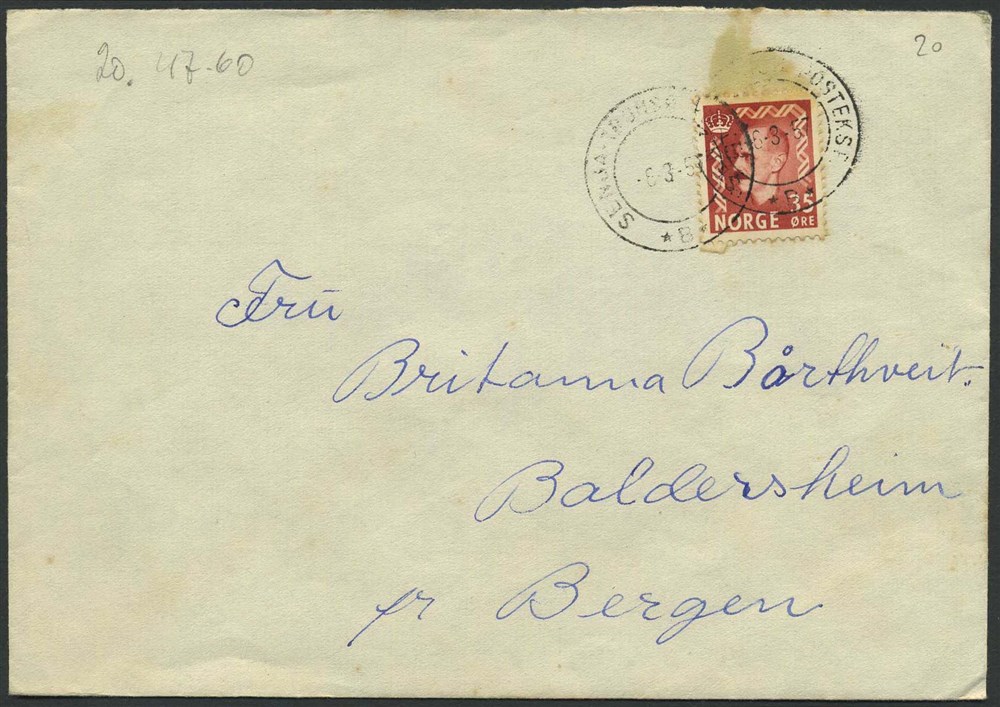 20. 47-60
20
SENJA-TROMSØ
-6-3-57
* B *
POSTEKSP
6-3-57
* B *
NORGE 35 ØRE
Fru
Britanna Bårthveit.
Baldersheim
pr Bergen